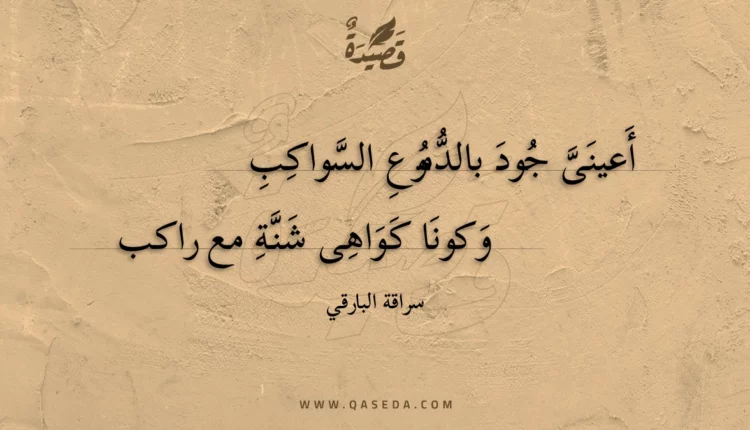 قَصِيدَةٌ
أَعينَىَّ جُودَ بالدُّمُوُعِ السَّواكِبِ
وَكونَا كَوَاهِى شَنَّةِ مع راكب
سراقة البارقي
WWW.QASEDA.COM